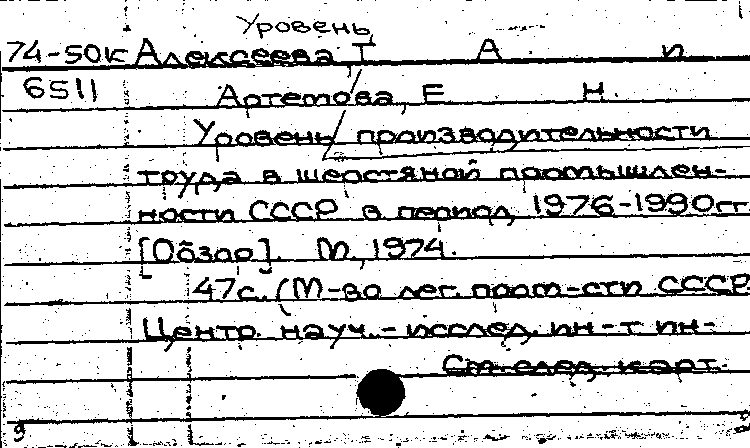 Уровень
74-50к Алексеева, Т А. и
6511 Артемова, Е. Н.
Уровень производительности
труда в шерстяной промышлен-
ности СССР в период 1976-1990гг
[Обзор]. М., 1974.
47с. (М-во лег. пром-сти СССР
Центр. науч.-исслед. ин-т ин-
См. след. карт.
9